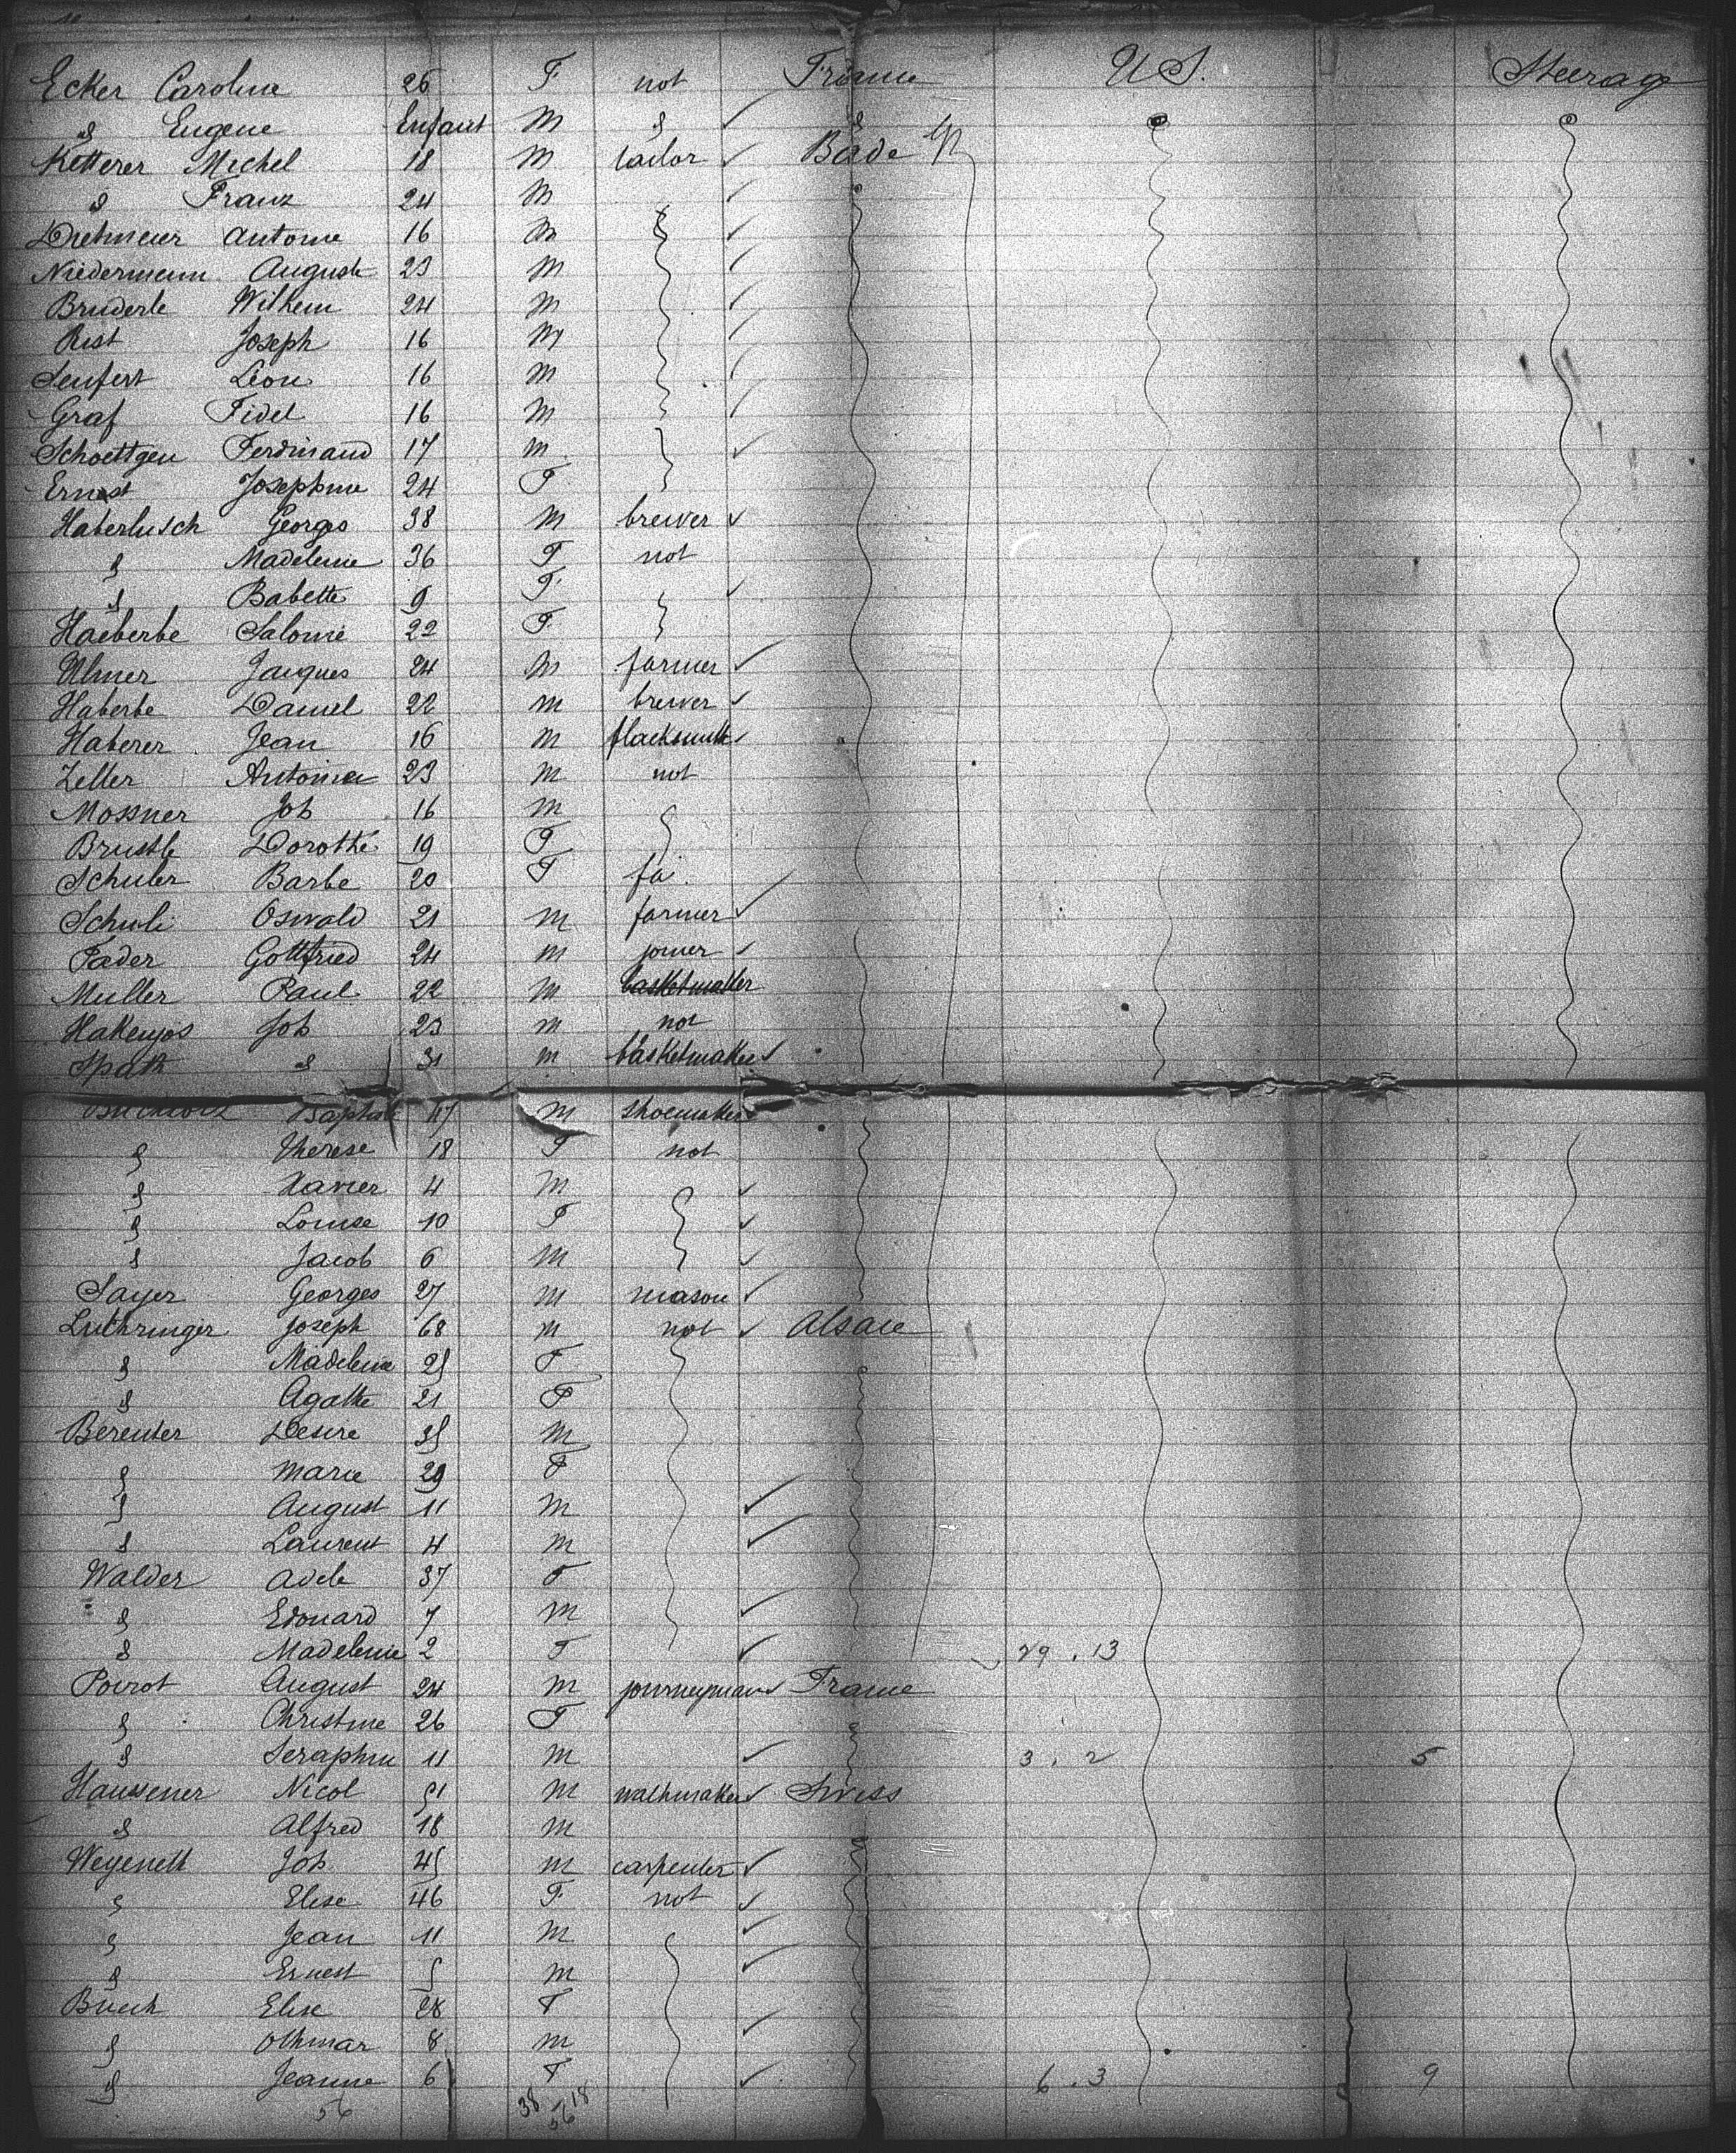 Ecker Carolina 26 F not France U S. Steerage
" Eugene Enfant M " "
Ketterer Michel 18 M tailor Bade
" Franz 24 M
Dietmeier Antoine 16 M
Niedermann August 23 M
Bruderle Wilhem 24 M
Rist Joseph 16 M
Senfert Léon 16 M
Graf Fidel 16 M
Schoettgen Ferdinand 17 M
Ernst Josephine 24 F
Haberlusch Georges 38 M brewer
" Madeleine 36 F not
" Babette 9 F
Haeberbe Salomé 22 F
Ulmer Jacques 24 M farmer
Haberbe Daniel 22 M brewer
Haberer Jean 16 M blacksmith
Zeller Antoine 23 M not
Mossner Joh 16 M
Brustle Dorothé 19 F
Schuler Barbe 20 F
Schuli Oswald 21 M farmer
Fader Gottfried 24 M joiner
Muller Paul 22 M basketmaker
Hakenjos Joh 23 M not
Spath " 31 M basketmaker
Baptist 47 M shoemaker
" Therese 18 F not
" Xavier 4 M
" Louise 10 F
" Jacob 6 M
Sayer Georges 27 M mason
Luthringer Joseph 68 M not Alsace
" Madeleine 25 F
" Agathe 21 F
Bereuter Desire 35 M
" Marie 29 F
" August 11 M
" Laurent 4 M
Walder Adele 37 F
" Edouard 7 M
" Madeleine 2 F 29 . 13
Poirot August 24 M journeyman France
" Christine 26 F
" Seraphin 11 M 3 . 2 5
Haussener Nicol 51 M wathmaker Swiss
" Alfred 18 M
Weyenett Joh 45 M carpenter
" Elise 46 F not
" Jean 11 M
" Ernest 5 M
Buech Elise 28 F
" Othmar 8 M
" Jeanne 6 F 6 . 3 9
56 38 18
56